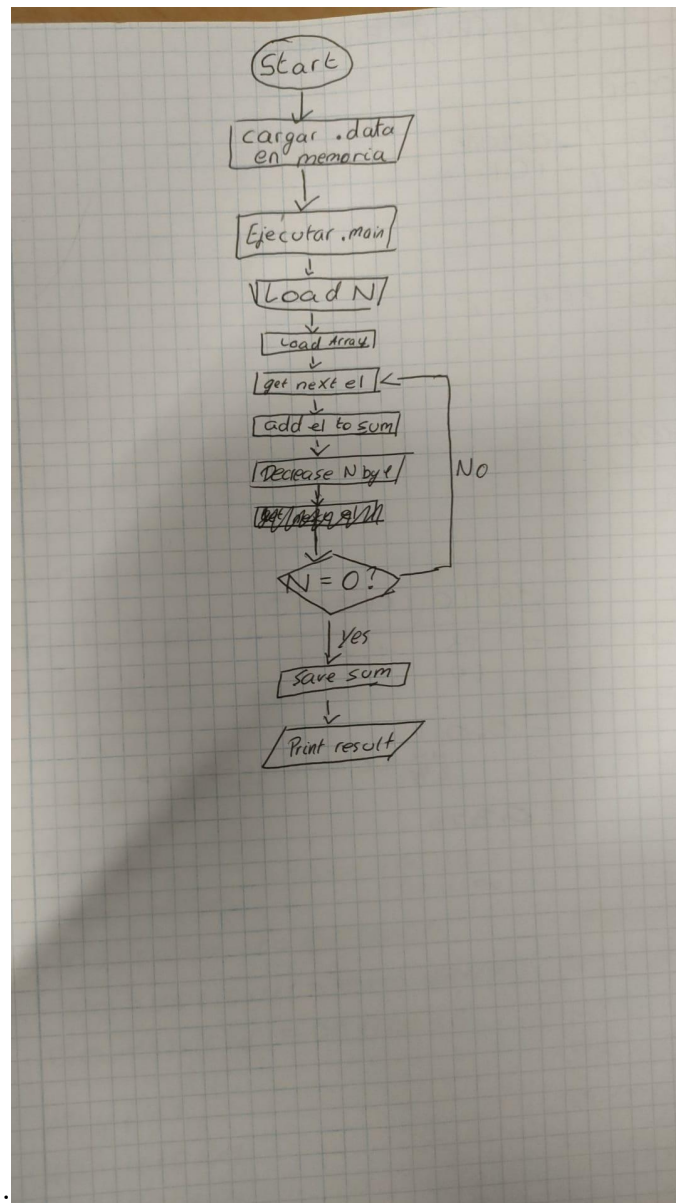 Start
cargar .data
en memoria
Ejecutar .main
Load N
Load Array
get next el
add el to sum
Decrease N by 1
N = 0?
No
Yes
Save sum
Print result